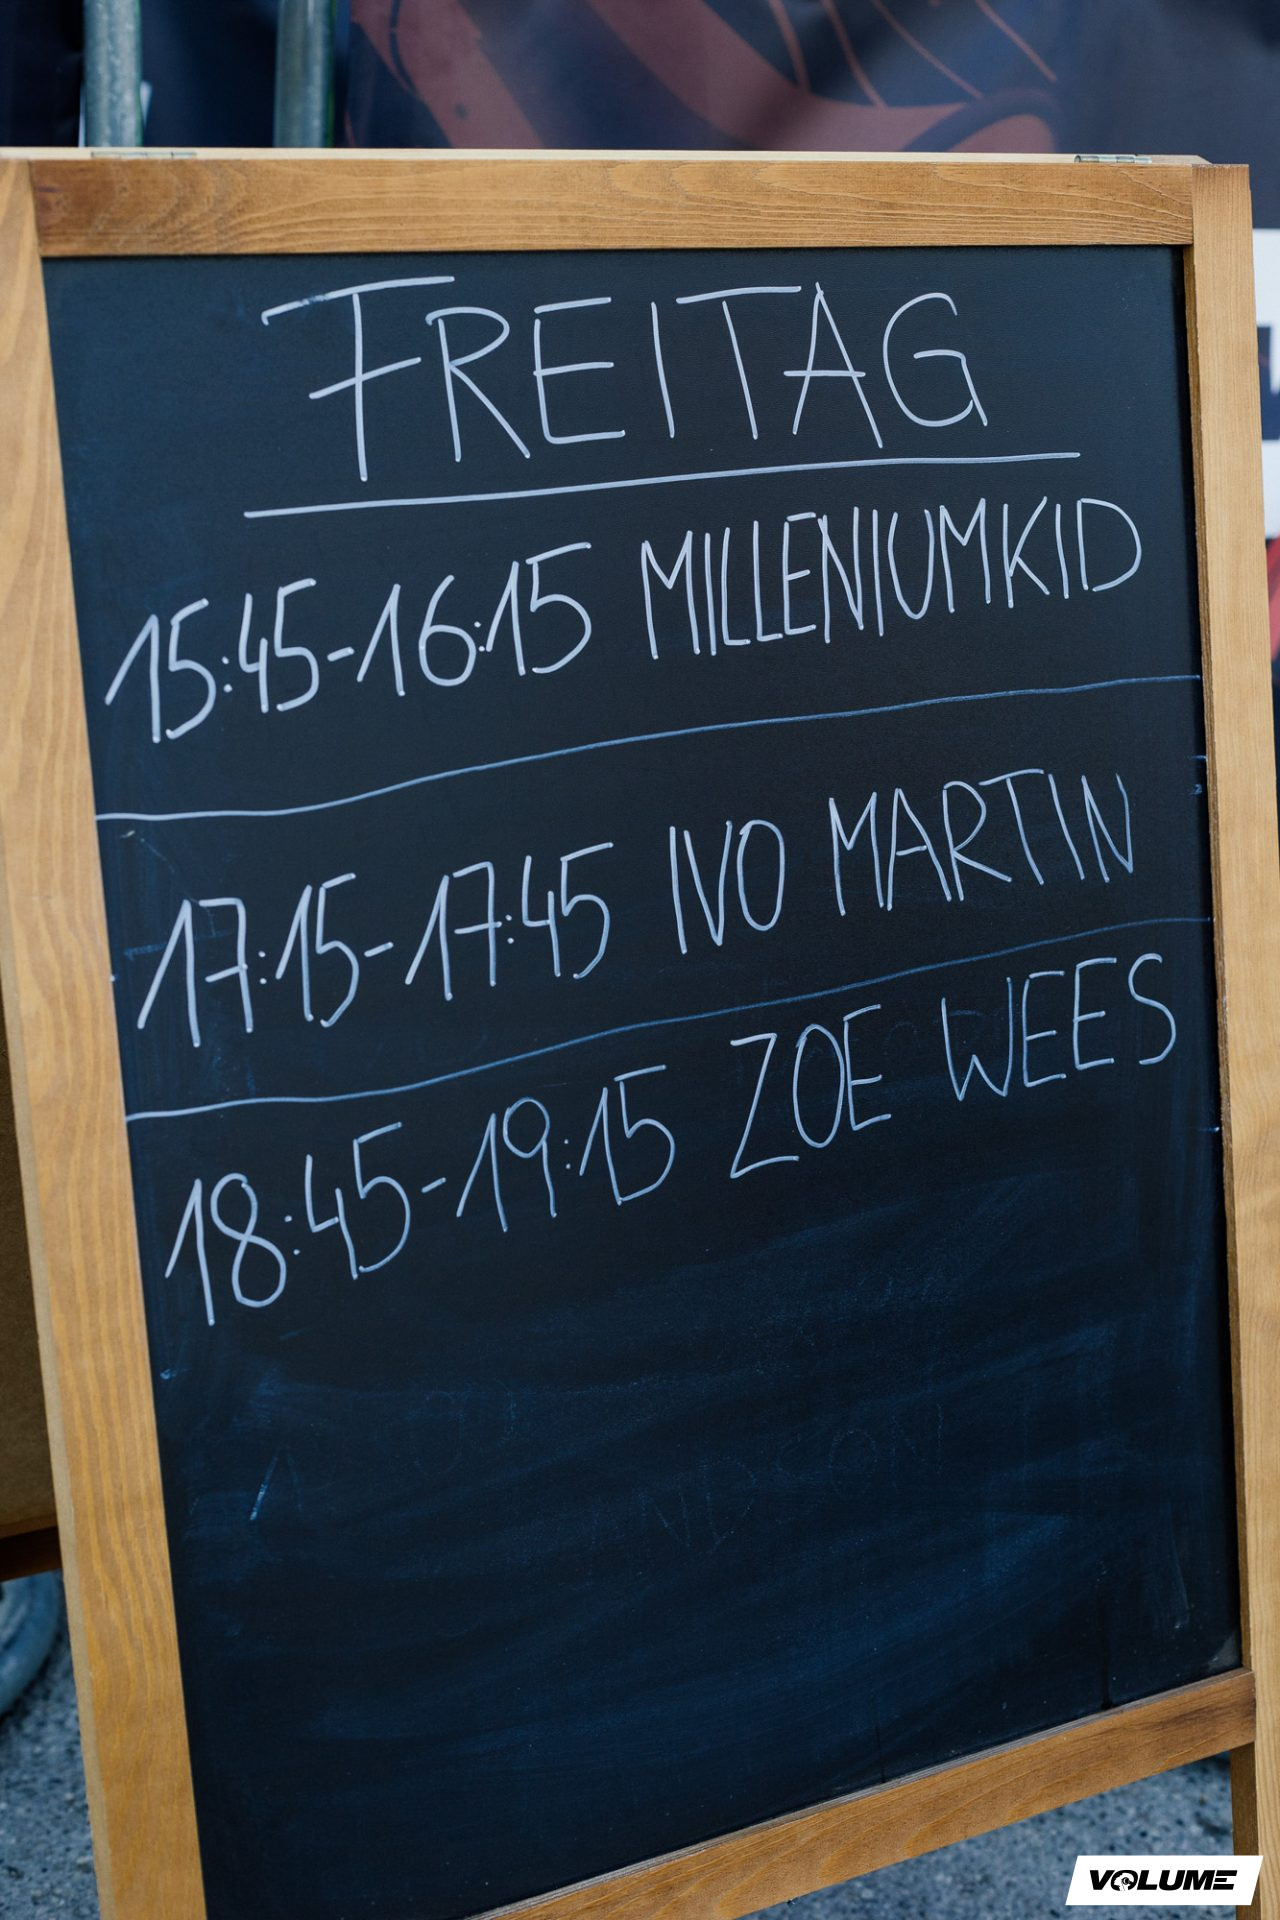 FREITAG
15:45-16:15 MILLENIUMKID
17:15-17:45 IVO MARTIN
18:45-19:15 ZOE WEES
VOLUME